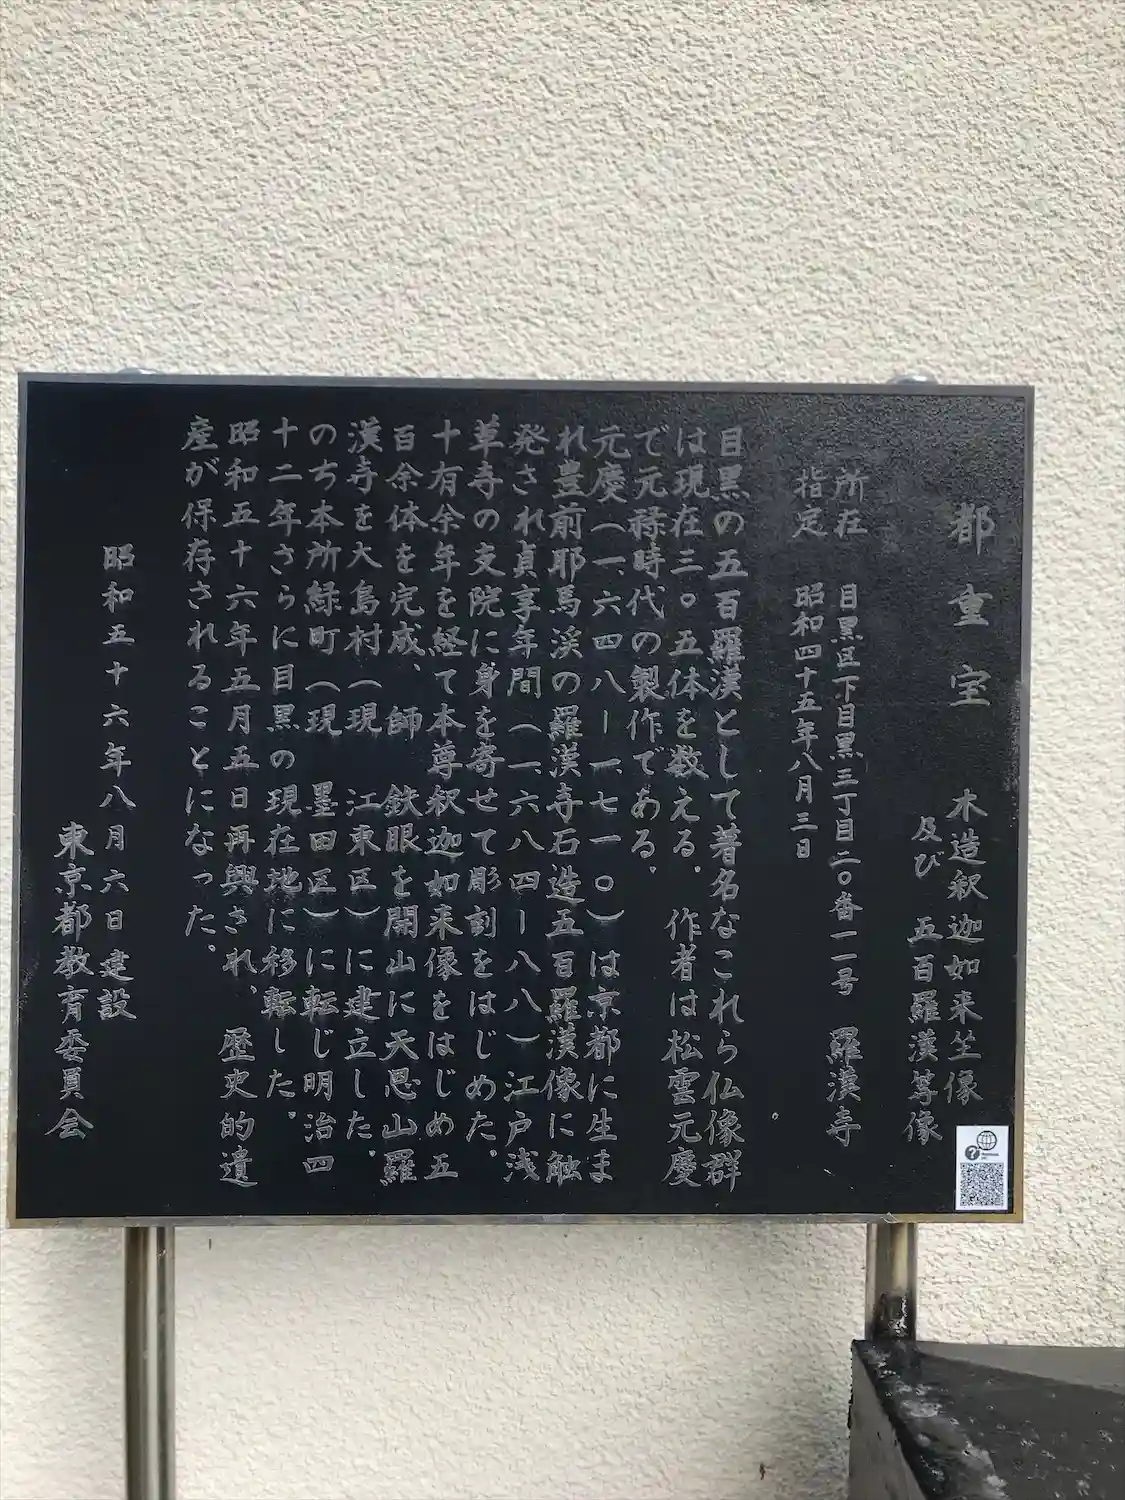 都重宝　木造釈迦如来坐像
及び　五百羅漢尊像
所在　目黒区下目黒三丁目二〇番一一号　羅漢寺
指定　昭和四十五年八月三日
目黒の五百羅漢として著名なこれら仏像群
は現在三〇五体を数える。　作者は松雲元慶
で元祿時代の製作である。
元慶（一、六四八ー一、七一〇）は京都に生ま
れ豊前耶馬渓の羅漢寺石造五百羅漢像に触
発され貞享年間（一、六八四ー八八）江戸浅
草寺の支院に身を寄せて彫刻をはじめた。
十有余年を経て本尊釈迦如来像をはじめ五
百余体を完成、師　鉄眼を開山に天恩山羅
漢寺を大島村（現　江東区）に建立した。
のち本所緑町（現　墨田区）に転じ明治四
十二年さらに目黒の現在地に移転した。
昭和五十六年五月五日再興され、歴史的遺
産が保存されることになった。
昭和五十六年八月六日建設
東京都教育委員会